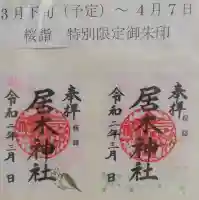 3月下旬(予定)～4月7日
桜詣 特別限定御朱印
奉拝
桜詣
居木神社
令和二年三月 日
奉拝
桜詣
居木神社
令和二年三月 日